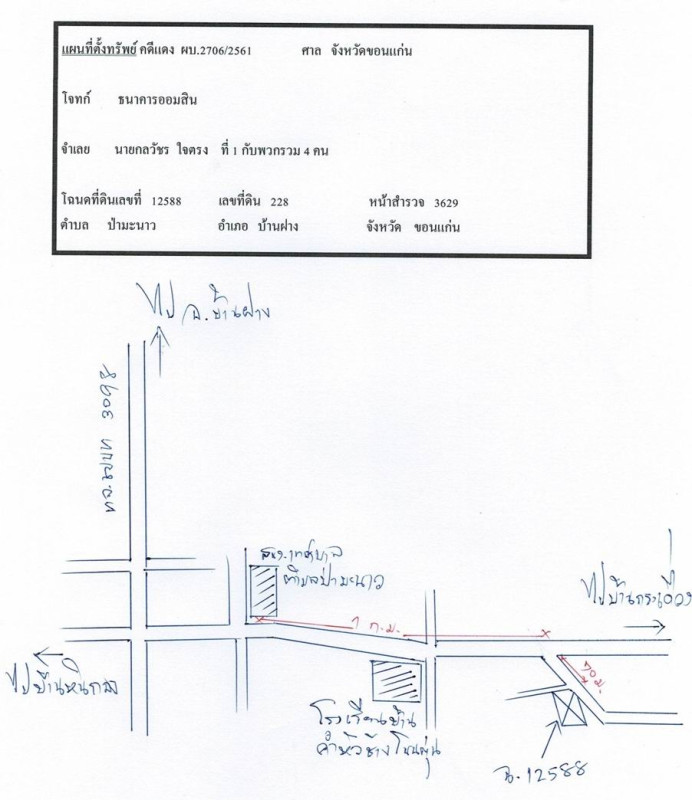 แผนที่ตั้งทรัพย์ คดีแดง ผบ.2706/2561 ศาล จังหวัดขอนแก่น
โจทก์ ธนาคารออมสิน
จำเลย นายกลวัชร ใจตรง ที่ 1 กับพวกรวม 4 คน
โฉนดที่ดินเลขที่ 12588 เลขที่ดิน 228 หน้าสำรวจ 3629
ตำบล ป่ามะนาว อำเภอ บ้านฝาง จังหวัด ขอนแก่น
ไป อ.บ้านฝาง
ทางหลวง
สนง.เทศบาล
ตำบลป่ามะนาว
1 ก.ม.
ไปบ้านกระเดื่อง
70 ม.
ไปบ้านหินกอง
โรงเรียนบ้าน
คำหัวช้าง
ฉ.12588